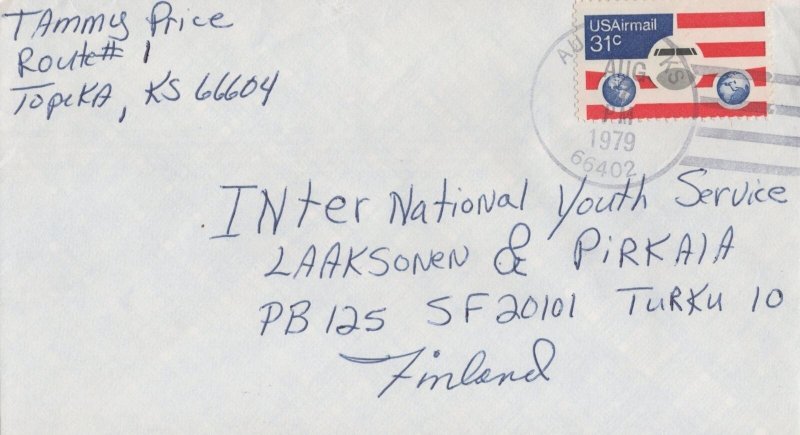 TAmmy Price
Route# 1
TopeKA, KS 66604
USAirmail
31c
AUG
PM
1979
66402
KS
INter National Youth Service
LAAKSONEN & PiRKAIA
PB 125 SF 20101 TURKU 10
Finland